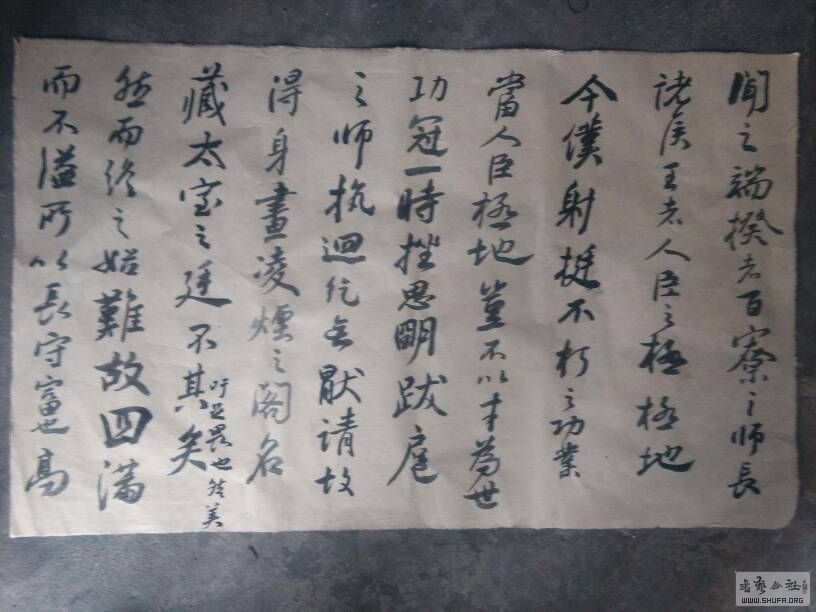 聞之端揆者百寮之師長
諸侯王者人臣之極極地
今僕射挺不朽之功業
當人臣極地豈不以才為世
功冠一時挫思明跋扈
之師抗迴紇無厭請故
得身畫凌煙之閣名
藏太室之廷不其矣
吁足畏也然美
然而終之始難故曰滿
而不溢所以長守富也高
書藝公社
WWW.SHUFA.ORG